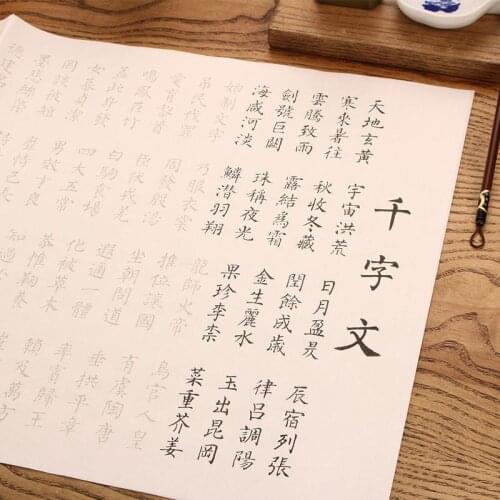 千字文
天地玄黃 宇宙洪荒 日月盈昃 辰宿列張
寒來暑往 秋收冬藏 閏餘成歲 律呂調陽
雲騰致雨 露結爲霜 金生麗水 玉出昆岡
劍號巨闕 珠稱夜光 果珍李柰 菜重芥姜
海咸河淡 鱗潛羽翔 龍師火帝 鳥官人皇
始制文字 乃服衣裳 推位讓國 有虞陶唐
吊民伐罪 周發殷湯 坐朝問道 垂拱平章
愛育黎首 臣伏戎羌 遐邇一體 率賓歸王
鳴鳳在竹 白駒食場 化被草木 賴及萬方
蓋此身發 四大五常 恭惟鞠養
女慕貞潔 男效才良 知過
罔談彼短 靡恃己長
墨悲絲染
德建名